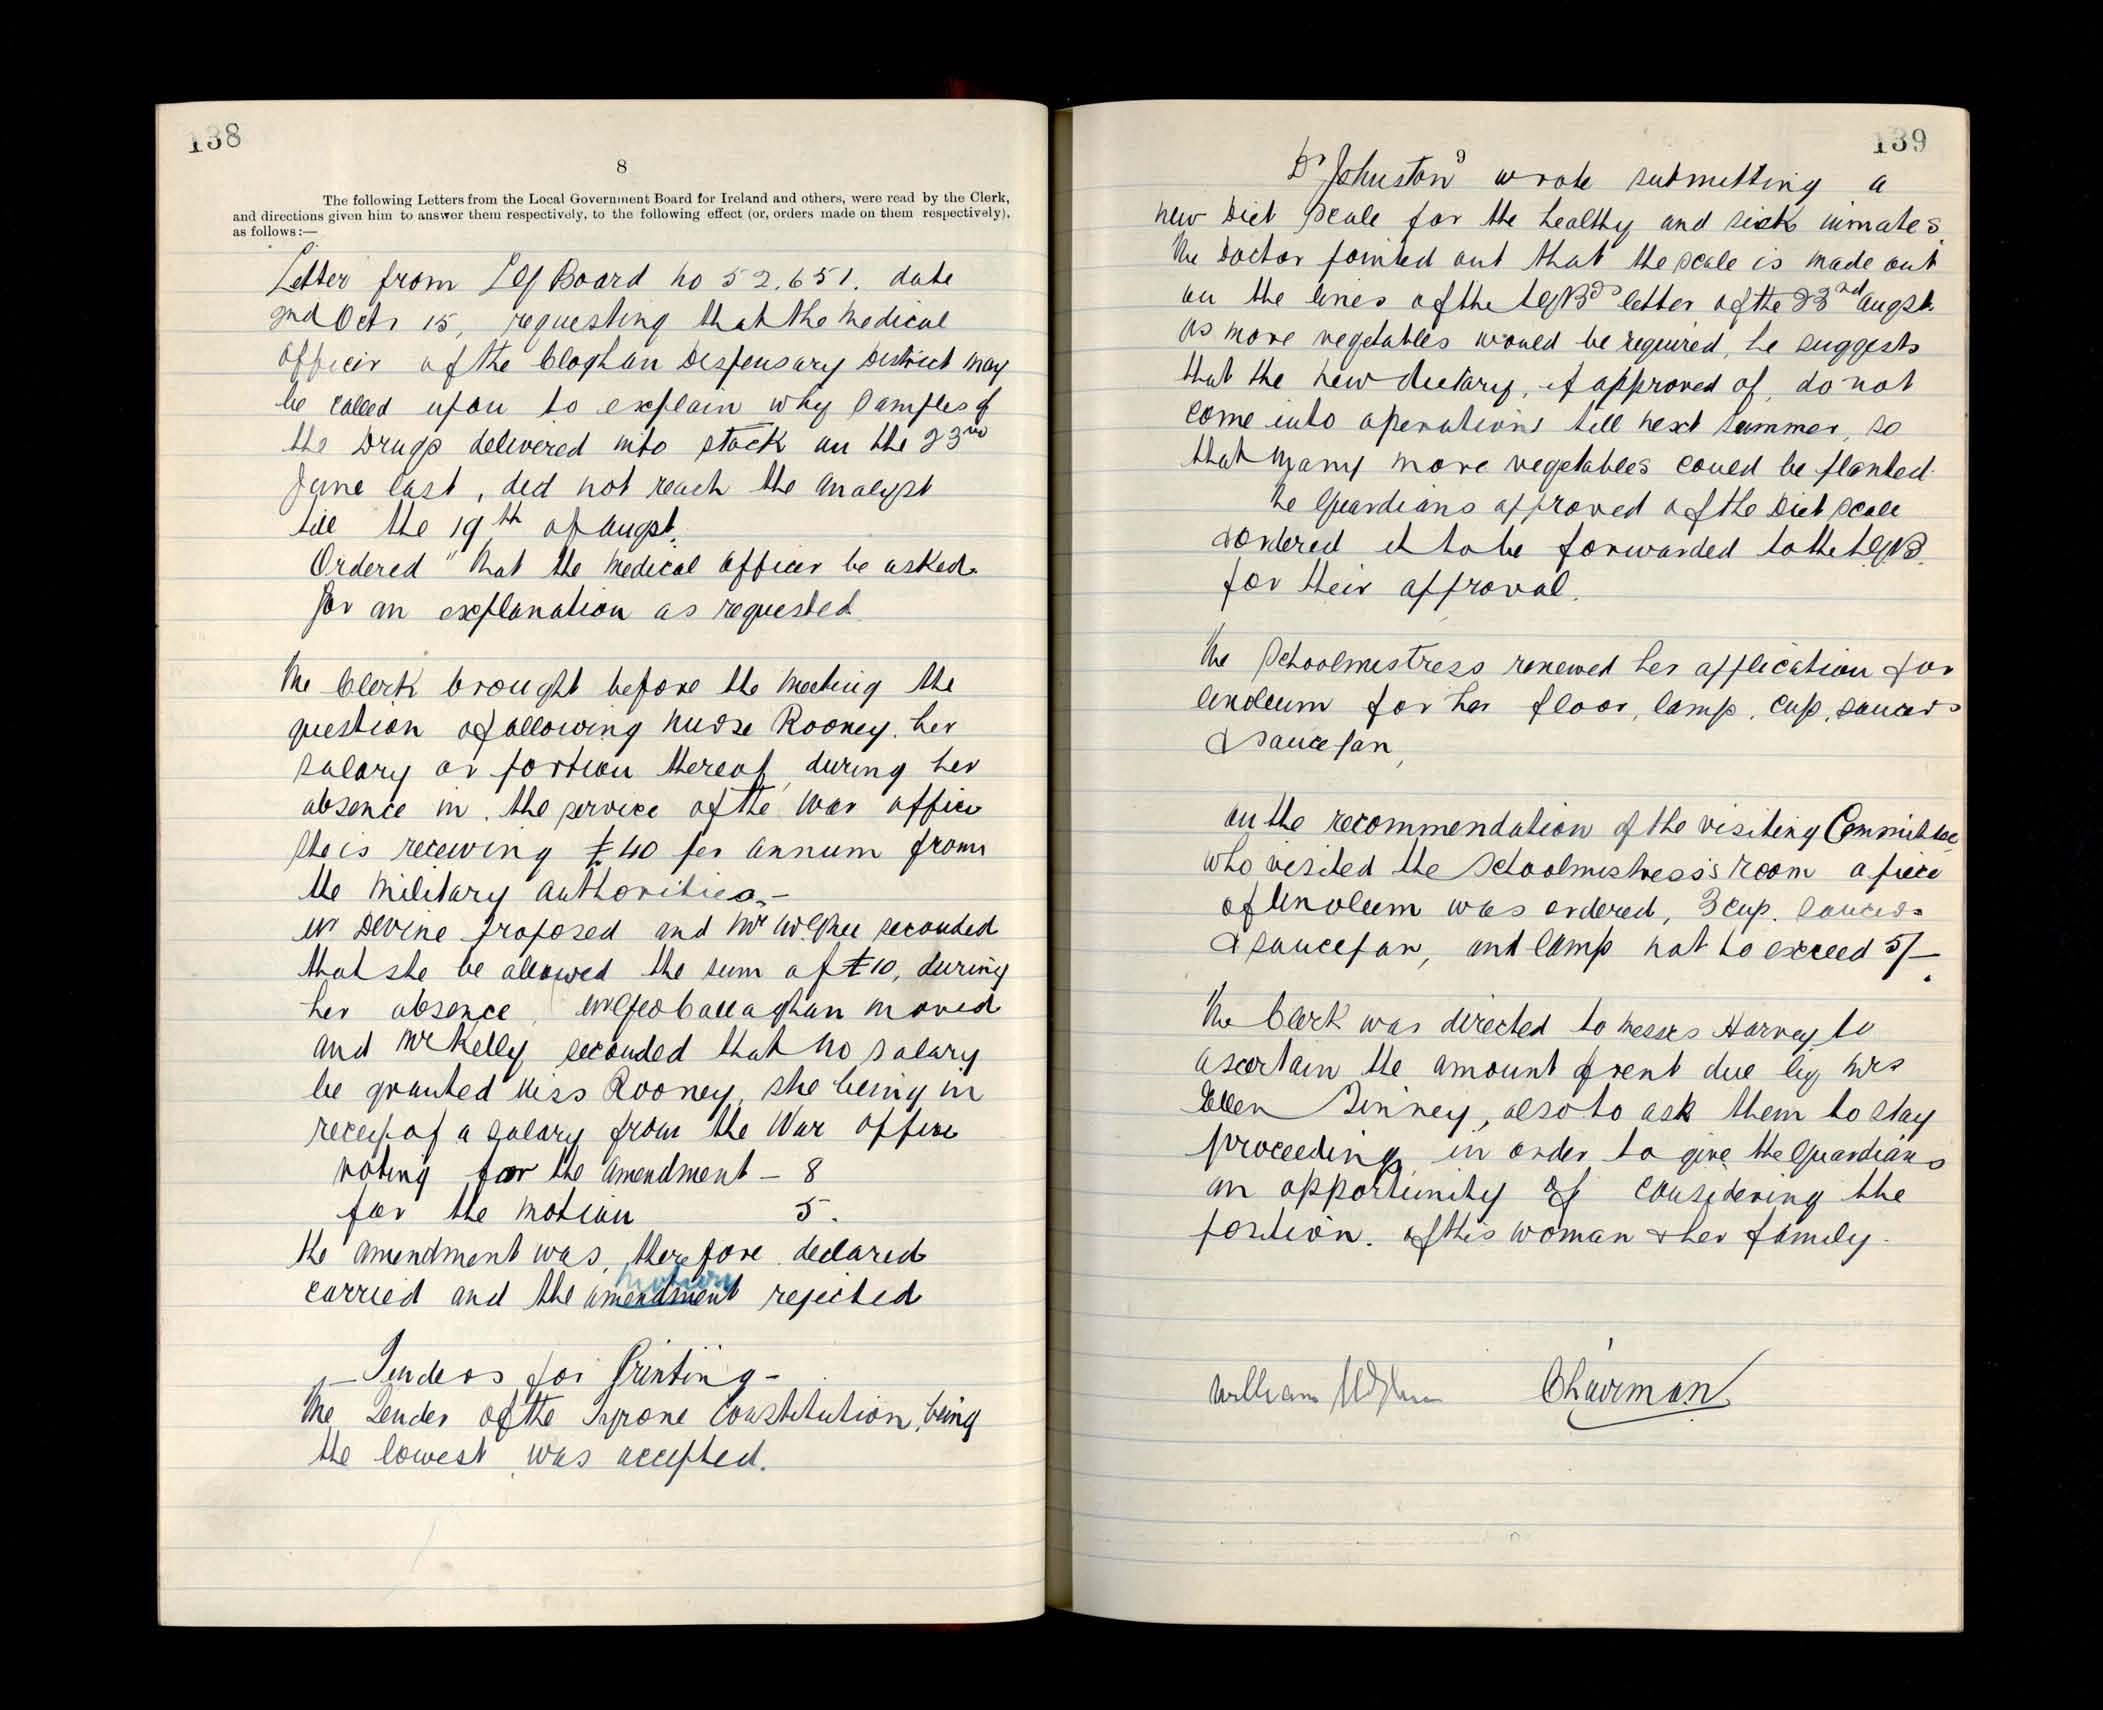 138
8
The following Letters from the Local Government Board for Ireland and others, were read by the Clerk,
and directions given him to answer them respectively, to the following effect (or, orders made on them respectively),
as follows:—
Letter from LG Board no 52.651. date
2nd Octr 15, requesting that the Medical
Officer of the Cloghan Dispensary District may
be called upon to explain why Samples of
the Drugs delivered into stock on the 23rd
June last, did not reach the Analyst
till the 19th of Augst.
Ordered "That the Medical Officer be asked
for an explanation as requested
The Clerk brought before the Meeting the
question of allowing Nurse Rooney, her
salary or portion thereof, during her
absence in the service of the War Office
she is receiving £40 per annum from
the Military Authorities.–
Mr Devine proposed and Mr seconded
that she be allowed the sum of £10, during
her absence Mr Geo Callaghan moved
and Mr Kelly seconded that no salary
be granted Miss Rooney, she being in
receip of a salary from the War Office
voting for the amendment – 8
for the motion 5.
the amendment was, therefore declared
motion
carried and the amendment rejected
– Tenders for Printing –
The Tender of the Tyrone Constitution, being
the lowest was accepted.
139
9
Dr Johnston wrote submitting a
new Diet Scale for the healthy and sick inmates
The Doctor pointed out that the scale is made out
on the lines of the LGBds letter of the 23rd Augst.
As more vegetables would be required, he suggests
that the new dietary, if approved of, do not
come into operation till next summer, so
that many more vegetables could be planted.
The Guardians approved of the Diet Scale
& ordered it to be forwarded to the LGB.
for their approval.
The Schoolmistress renewed her application for
linoleum for her floor, lamp, cup, saucers
& saucepan,
On the recommendation of the visiting Committee
who visited the Schoolmistress's room a piece
of linoleum was ordered, 3 cup. saucers
& saucepan, and lamp not to exceed 5/–
The Clerk was directed to Messrs Harvey to
ascertain the amount of rent due by Mrs
Ellen Tinney, also to ask them to stay
proceeding in order to give the Guardians
an opportunity of considering the
position of this woman & her family.
William Chairman